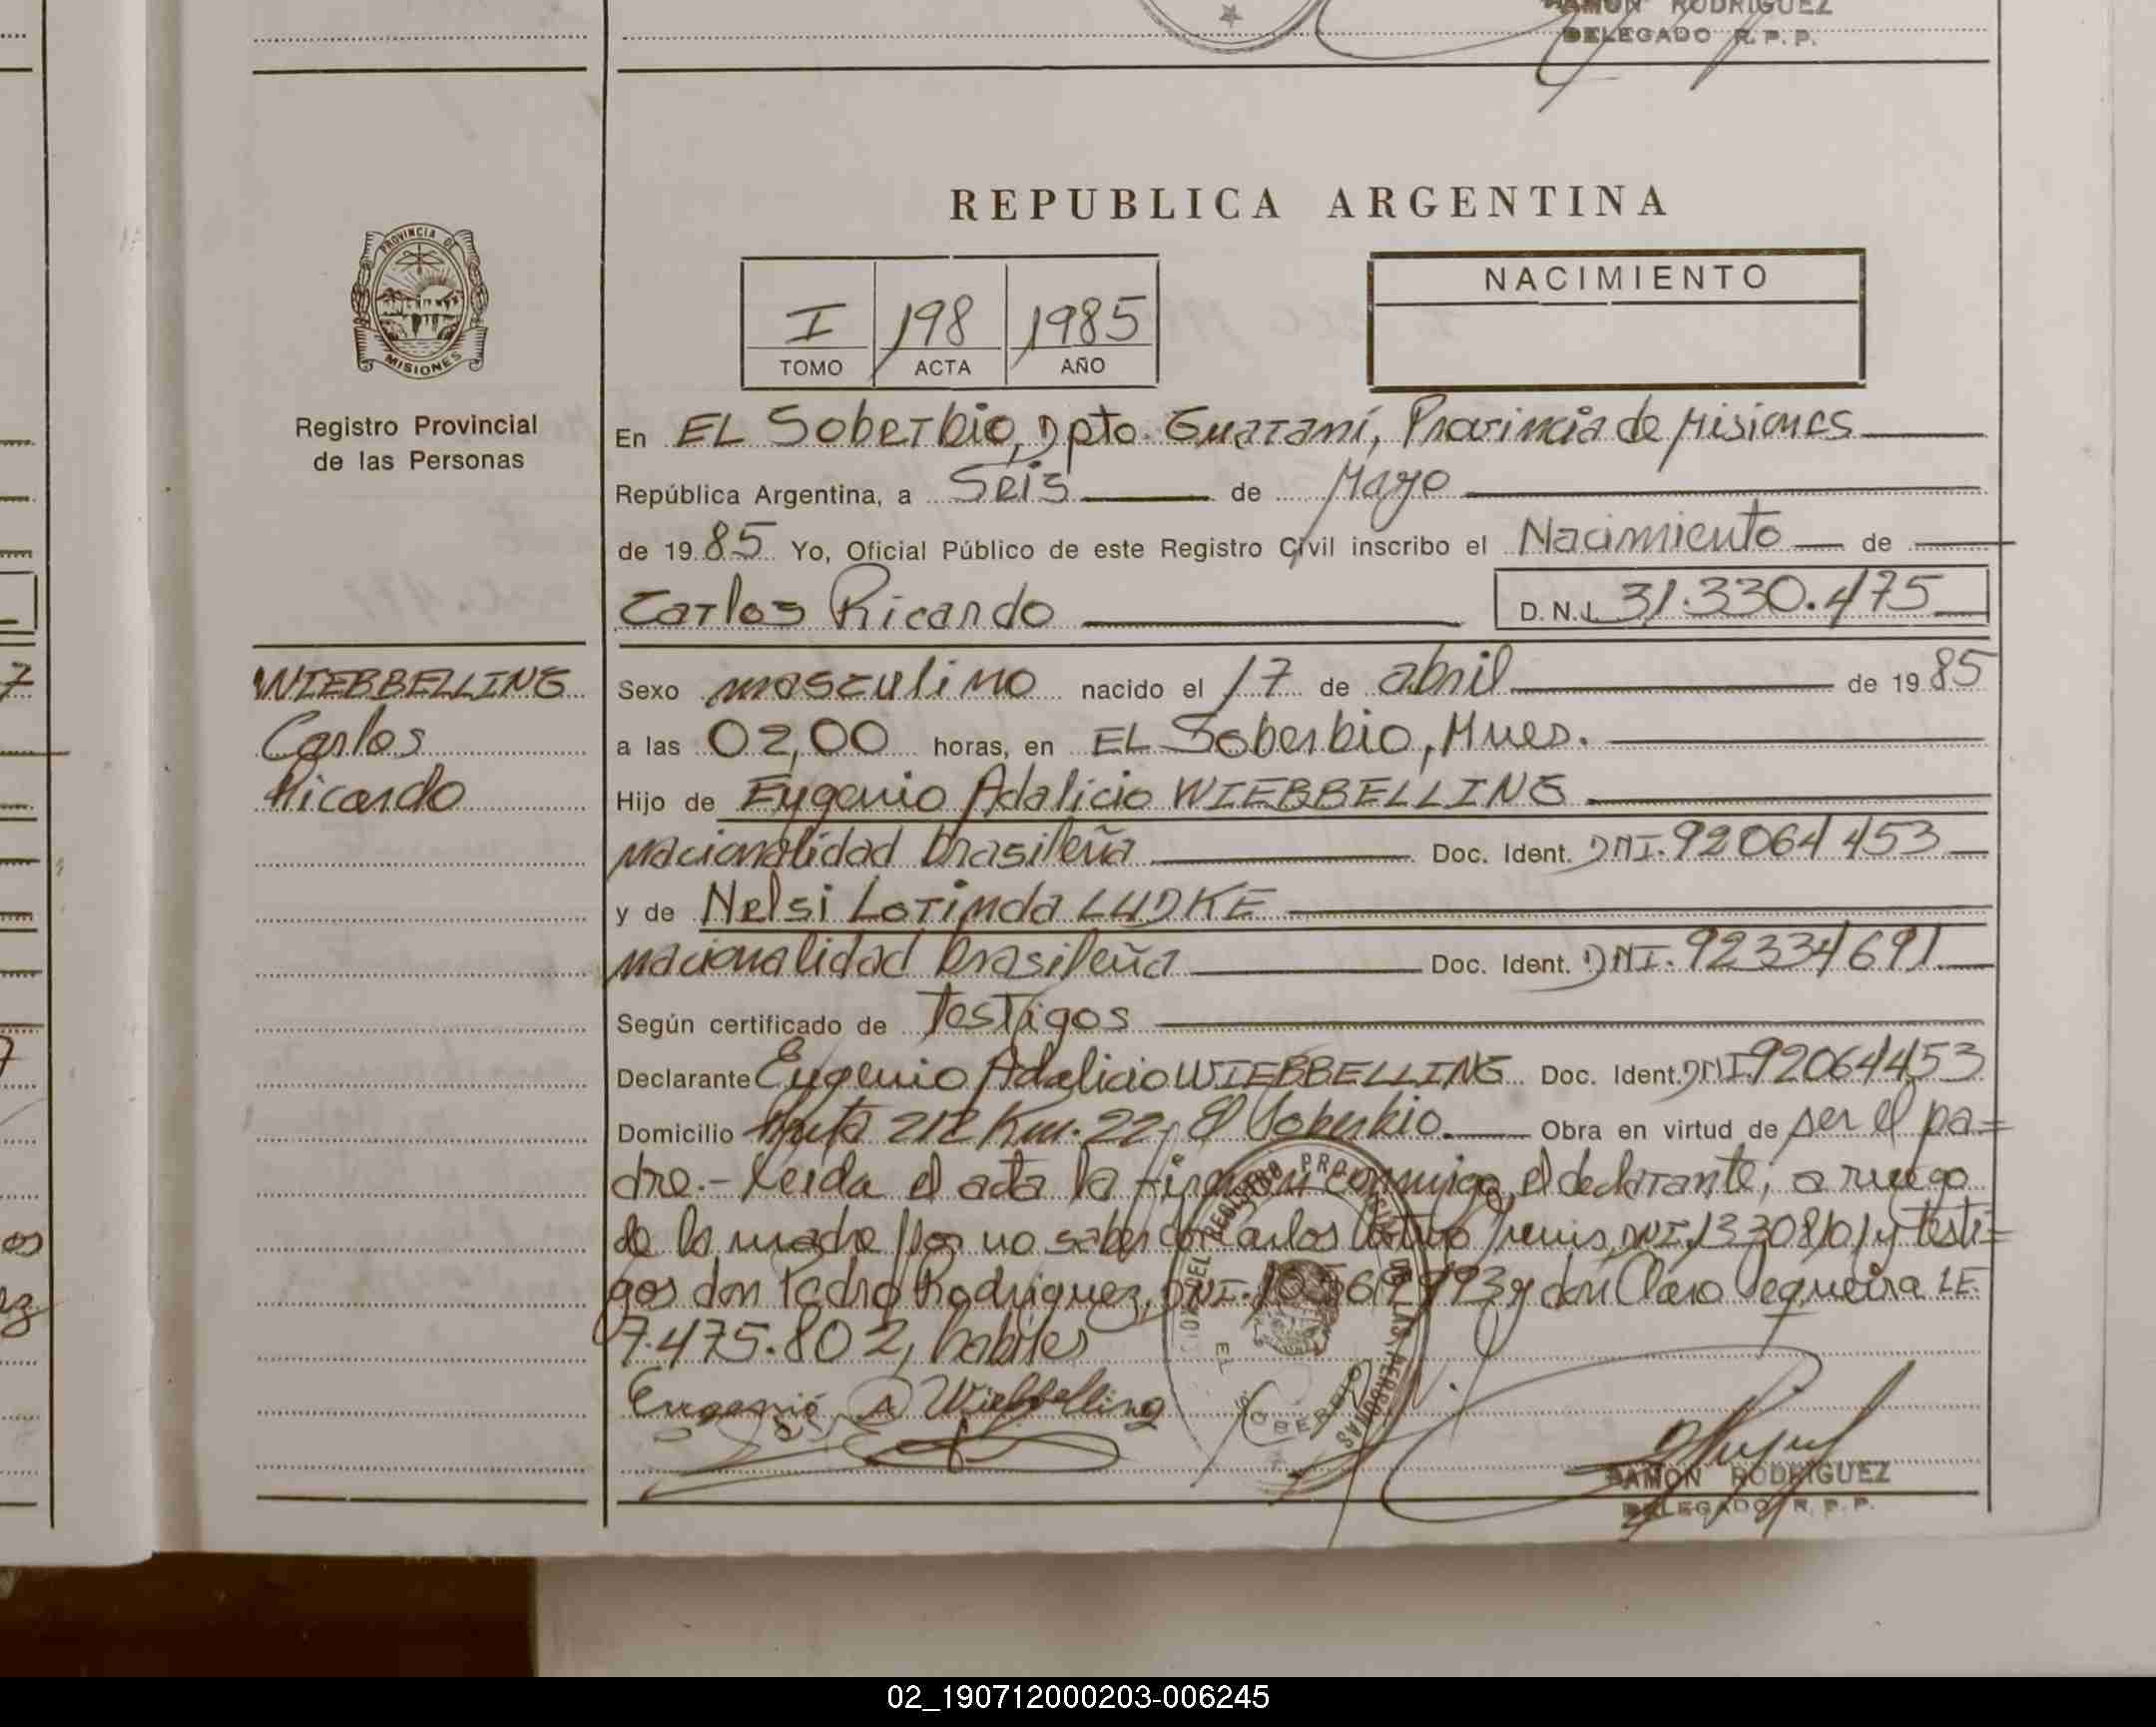 RAMON RODRIGUEZ
DELEGADO R. P. P.
REPUBLICA ARGENTINA
PROVINCIA DE
MISIONES
Registro Provincial
de las Personas
I 198 1985
TOMO ACTA AÑO
NACIMIENTO
En EL Soberbio, Dpto. Guaraní, Provincia de Misiones
República Argentina, a Seis de Mayo
de 1985 Yo, Oficial Público de este Registro Civil inscribo el Nacimiento de
Carlos Ricardo D. N. I. 31.330.475
WIEBBELLING
Carlos
Ricardo
Sexo masculino nacido el 17 de abril de 1985
a las 02,00 horas, en EL Soberbio, Mnes.
Hijo de Eugenio Adalicio WIEBBELLING
nacionalidad brasileña Doc. Ident. DNI. 92064453
y de Nelsi Lorinda LUDKE
nacionalidad brasileña Doc. Ident. DNI. 92334691
Según certificado de Testigos
Declarante Eugenio Adalicio WIEBBELLING Doc. Ident. DNI 92064453
Domicilio Ruta 212 Km. 22, El Soberbio. Obra en virtud de ser el pa=
dre.- Leida el acta la firman conmigo, el declarante, a ruego
de la madre por no saber don Carlos DNI. 13308101 y testi=
gos don Pedro Rodriguez, DNI. y don Claro Sequeira LE.
7.475.802, habiles
Eugenio A Wiebbelling
EL SOBERBIO
RAMON RODRIGUEZ
DELEGADO R. P. P.
02_190712000203-006245